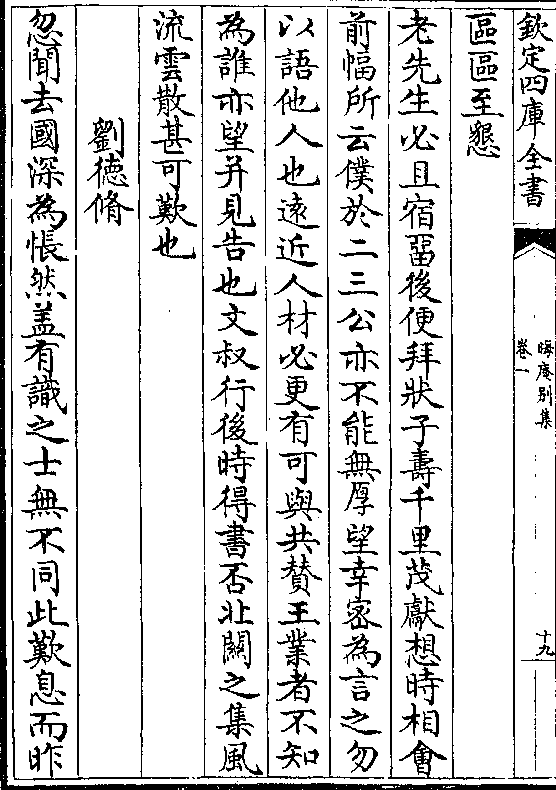 欽定四庫全書
晦庵別集
卷一
十九
區區至懇
老先生必且宿畱後便拜狀子壽千里茂獻想時相㑹
前幅所云僕於二三公亦不能無厚望幸宻為言之勿
以語他人也逺近人材必更有可與共賛王業者不知
為誰亦望并見告也文叔行後時得書否北闗之集風
流雲散甚可歎也
劉德脩
忽聞去國深為悵然盖有識之士無不同此歎息而昨